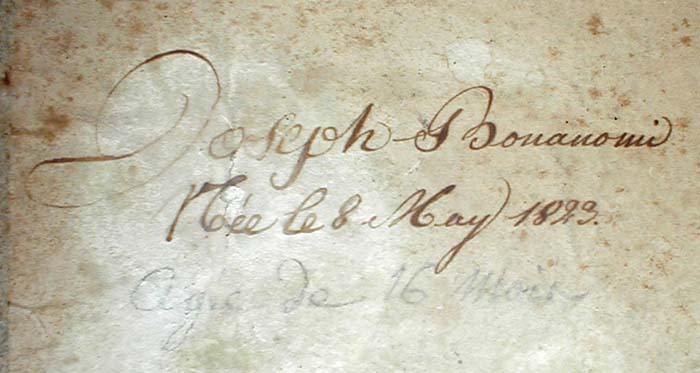 Joseph Bonanomi
Née le 8 May 1823.
Agé de 16 mois